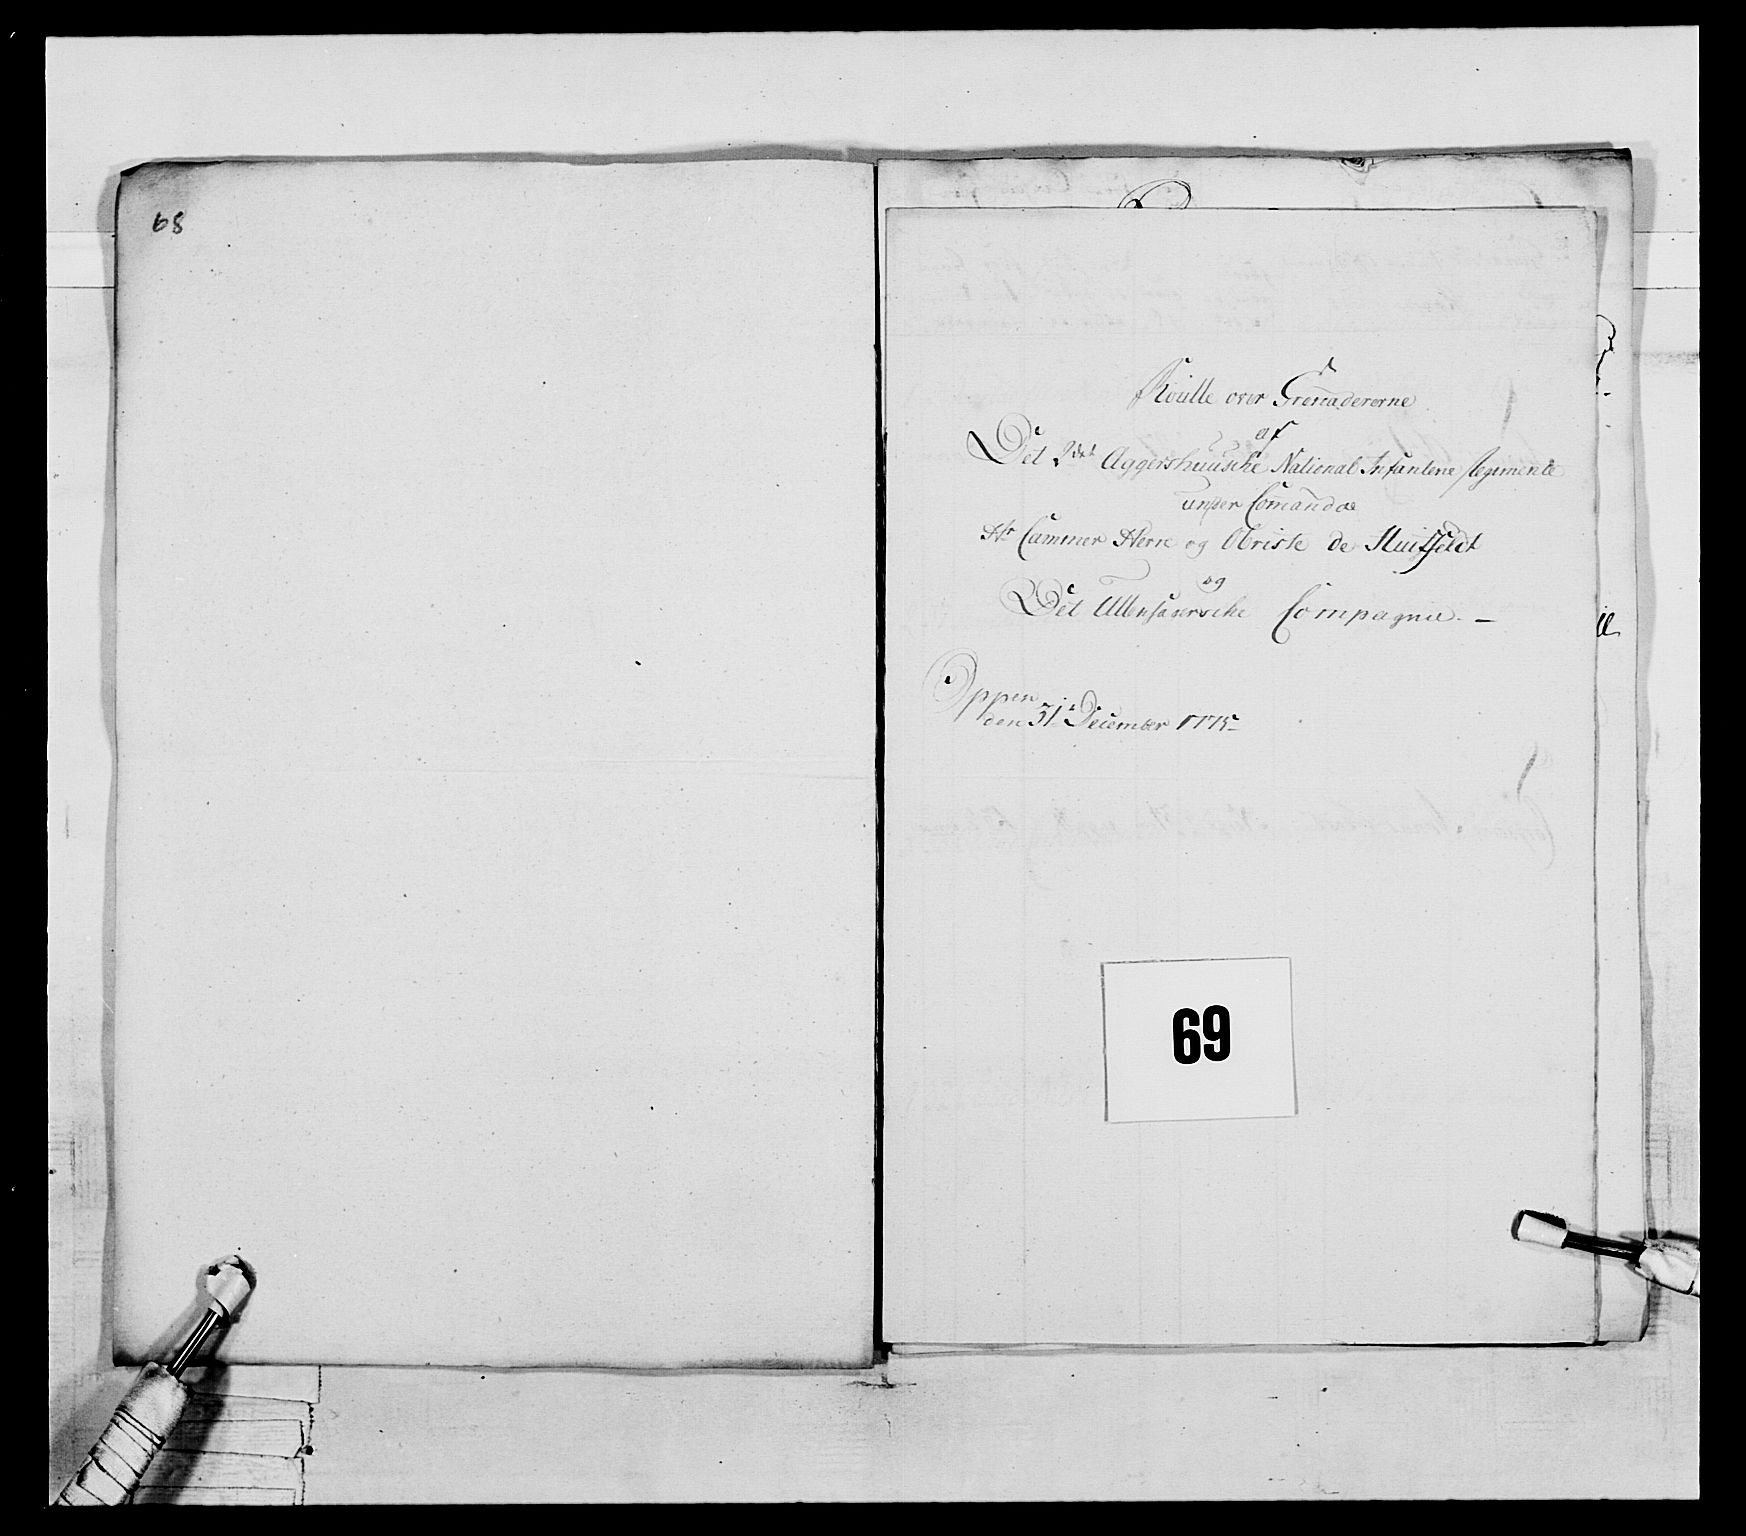 68
Roulle over Grenadererne
af
Det 2det Aggershuusche National Infanterie Regimente
under Comando
Hr Cammer Herre og Obriste de Huitfeldt
og
Det Ullensagersche Compagnie. –
den 31te December 1775
69